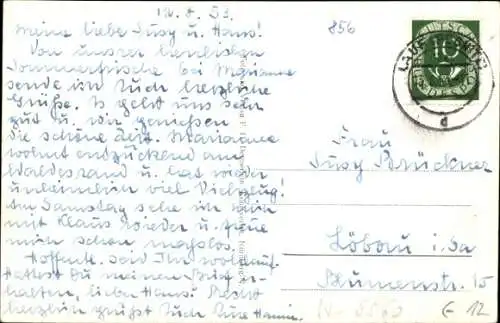 12.8.53.
Meine liebe Susy u. Hans!
Von unsrer herrlichen
Sommerfrische bei Marianne
sende ich Euch herzliche
Grüße. Es geht uns sehr
gut u. wir genießen
die schöne Zeit. Marianne
wohnt entzückend am
Waldesrand u. hat wieder
unheimlich viel
Am Samstag sehe ich mich
mit Klaus wieder u. freue
mich schon maßlos.
Hoffentl. seid Ihr wohlauf.
Hattest Du meinen Brief er-
halten, lieber Hans? Recht
herzlich grüßt Euch Eure Hanni.
856
DEUTSCHE
10
BUNDESPOST
a
Frau
Susy Brückner
Löbau i. Sa
Blumenstr. 15
E 12